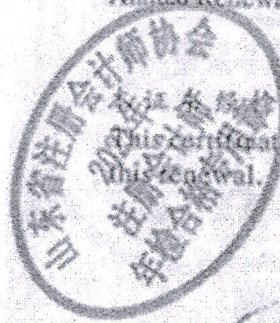 Annual Renewal
山东省注册会计师协会
注册会计师
年检合格专用章
本证书经检
This certificate
this renewal.